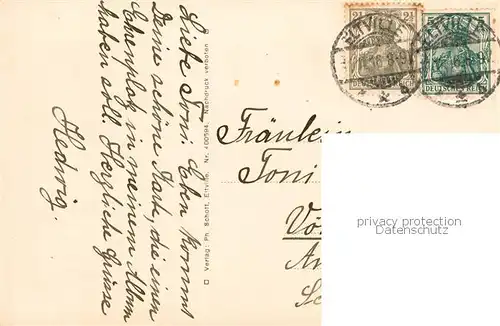 Liebe Toni! Eben kommt
Deine schöne Karte, die einen
Ehrenplatz in meinem Album
haben soll. Herzliche Grüsse
Hedwig.
Verlag: Ph. Schott, Eltville. Nr. 400594. Nachdruck verboten
ELTVILLE
2½
DEUTSCHES REICH
ELTVILLE
5
DEUTSCHES REICH
Fräulein
Toni
privacy protection
datenschutz